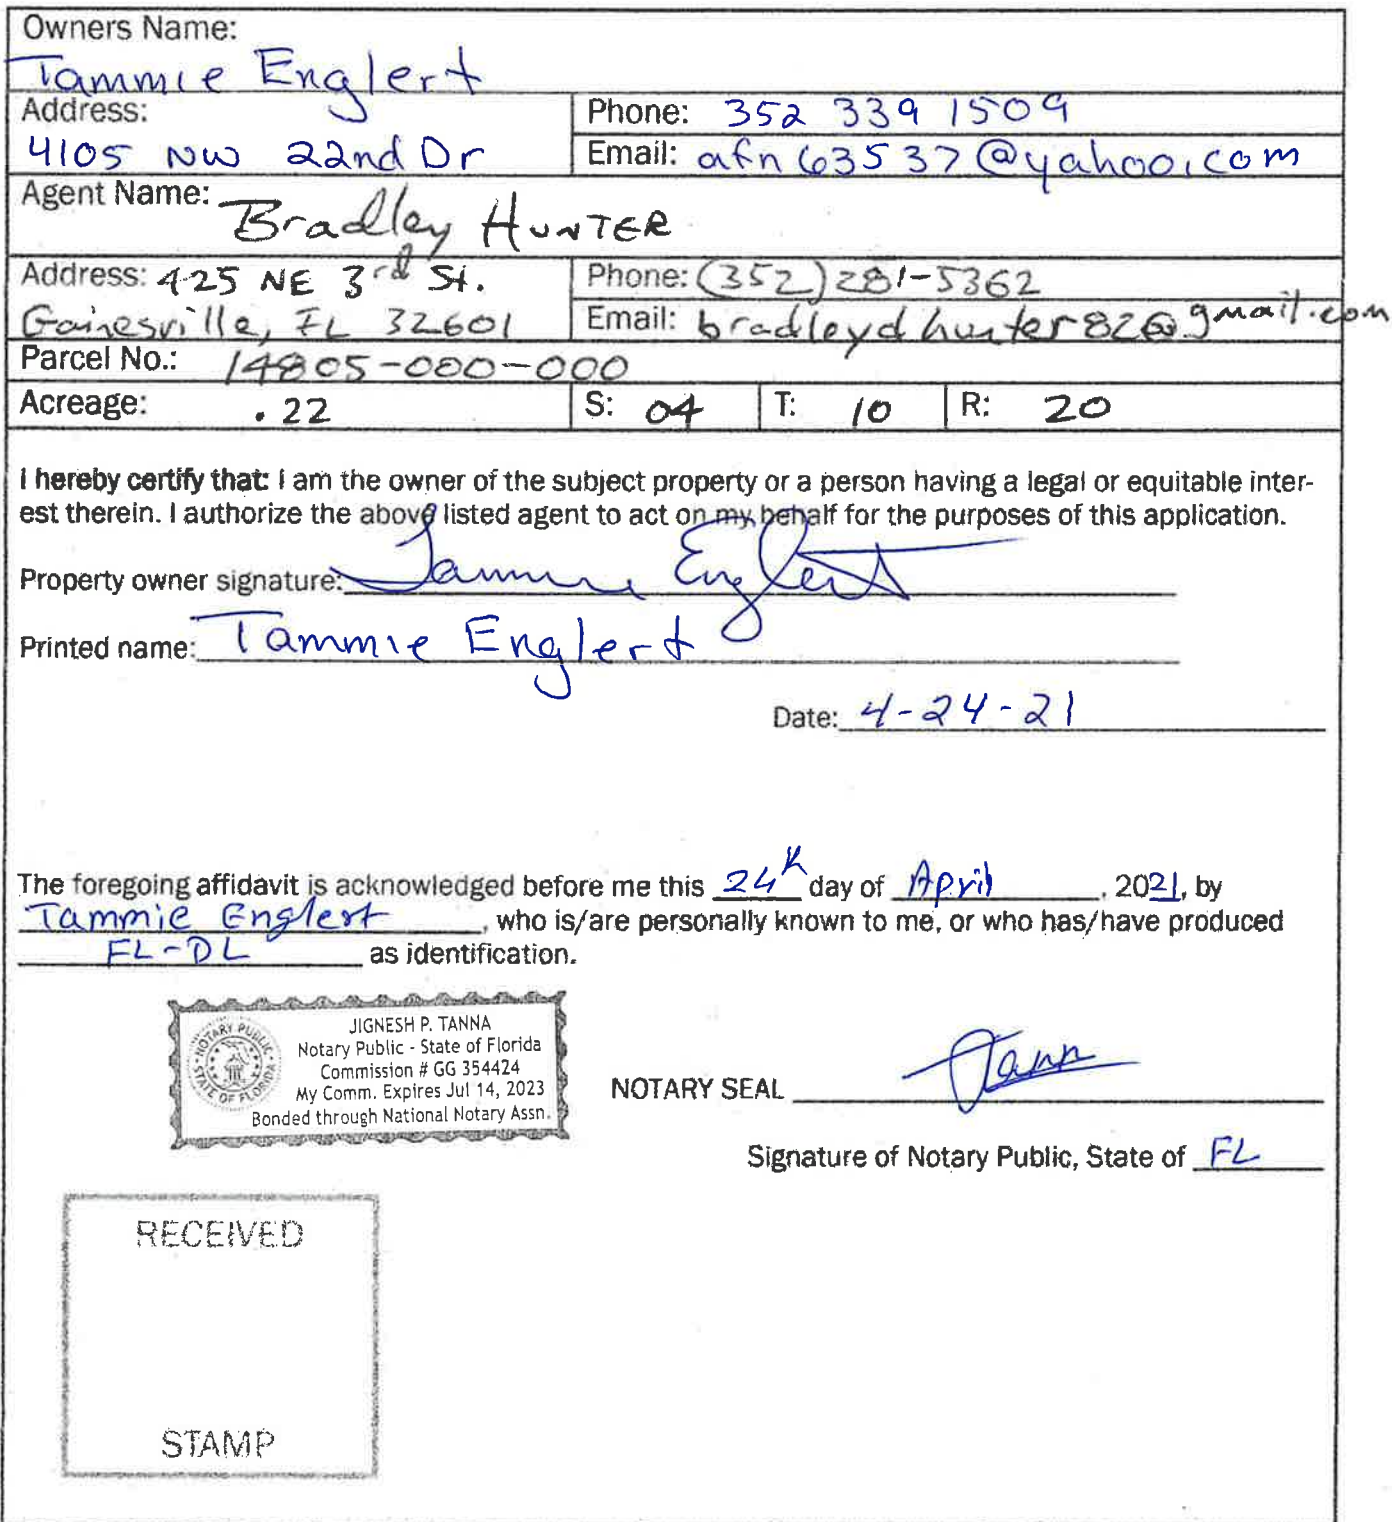 Owners Name:
Tammie Englert
Address:
4105 NW 22nd Dr
Phone: 352 339 1509
Email: afn63537@yahoo.com
Agent Name: Bradley HUNTER
Address: 425 NE 3rd St.
Gainesville, FL 32601
Phone: (352) 281-5362
Email: bradleydhunter82@gmail.com
Parcel No.: 14805-000-000
Acreage: .22 S: 04 T: 10 R: 20
I hereby certify that: I am the owner of the subject property or a person having a legal or equitable inter-
est therein. I authorize the above listed agent to act on my behalf for the purposes of this application.
Property owner signature: Tammie Englert
Printed name: Tammie Englert
Date: 4-24-21
The foregoing affidavit is acknowledged before me this 24th day of April, 2021, by
Tammie Englert, who is/are personally known to me, or who has/have produced
FL-DL as identification.
NOTARY PUBLIC
STATE OF FLORIDA
JIGNESH P. TANNA
Notary Public - State of Florida
Commission # GG 354424
My Comm. Expires Jul 14, 2023
Bonded through National Notary Assn.
NOTARY SEAL Tann
Signature of Notary Public, State of FL
RECEIVED
STAMP